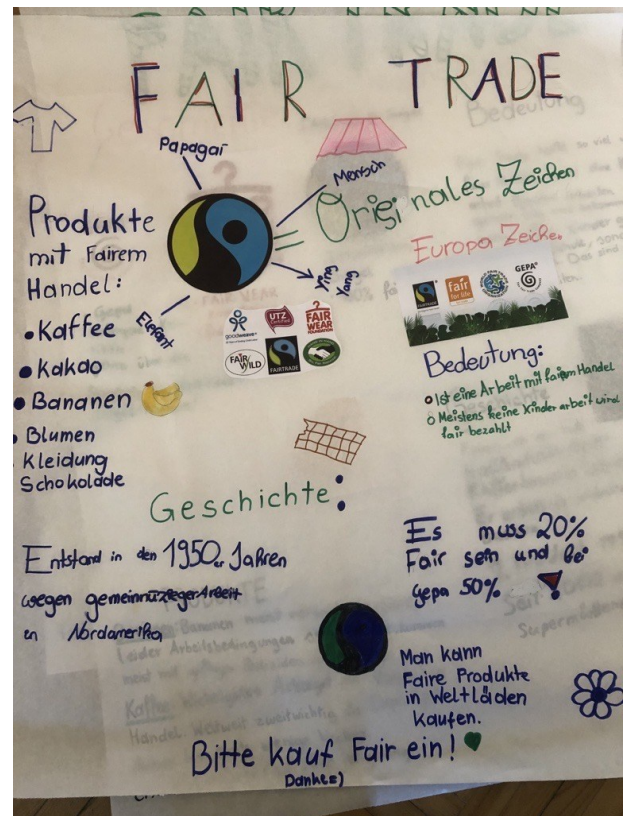 FAIR TRADE
Papagai
Mensch
= Originales Zeichen
Ying
Yang
Elefant
Produkte
mit Fairem
Handel:
• Kaffee
• Kakao
• Bananen
• Blumen
Kleidung
Schokolade
goodweave
UTZ
Certified
FAIR
WEAR
FOUNDATION
FAIR
WILD
FAIRTRADE
Europa Zeichen
FAIRTRADE
fair
for life
GEPA
Bedeutung:
• Ist eine Arbeit mit fairem Handel
○ Meistens keine Kinderarbeit wird
fair bezahlt
Geschichte:
Entstand in den 1950er Jahren
wegen gemeinnüzieger Arbeit
en Nordamerika
Es muss 20%
Fair sein und bei
gepa 50% !
Man kann
Faire Produkte
in Weltläden
kaufen.
Bitte kauf Fair ein!
Danke=)